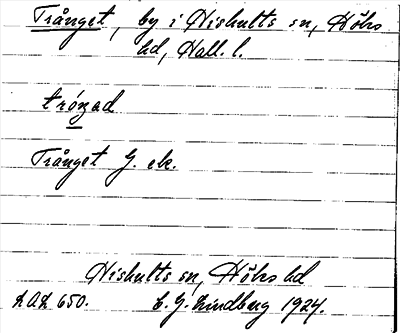 Trånget, by i Nishults sn, Höks
hd, Hall. l.
trónad
Trånget G. ek.
Nishults sn, Höks hd
LAL 650. L. G. Lindberg 1924.